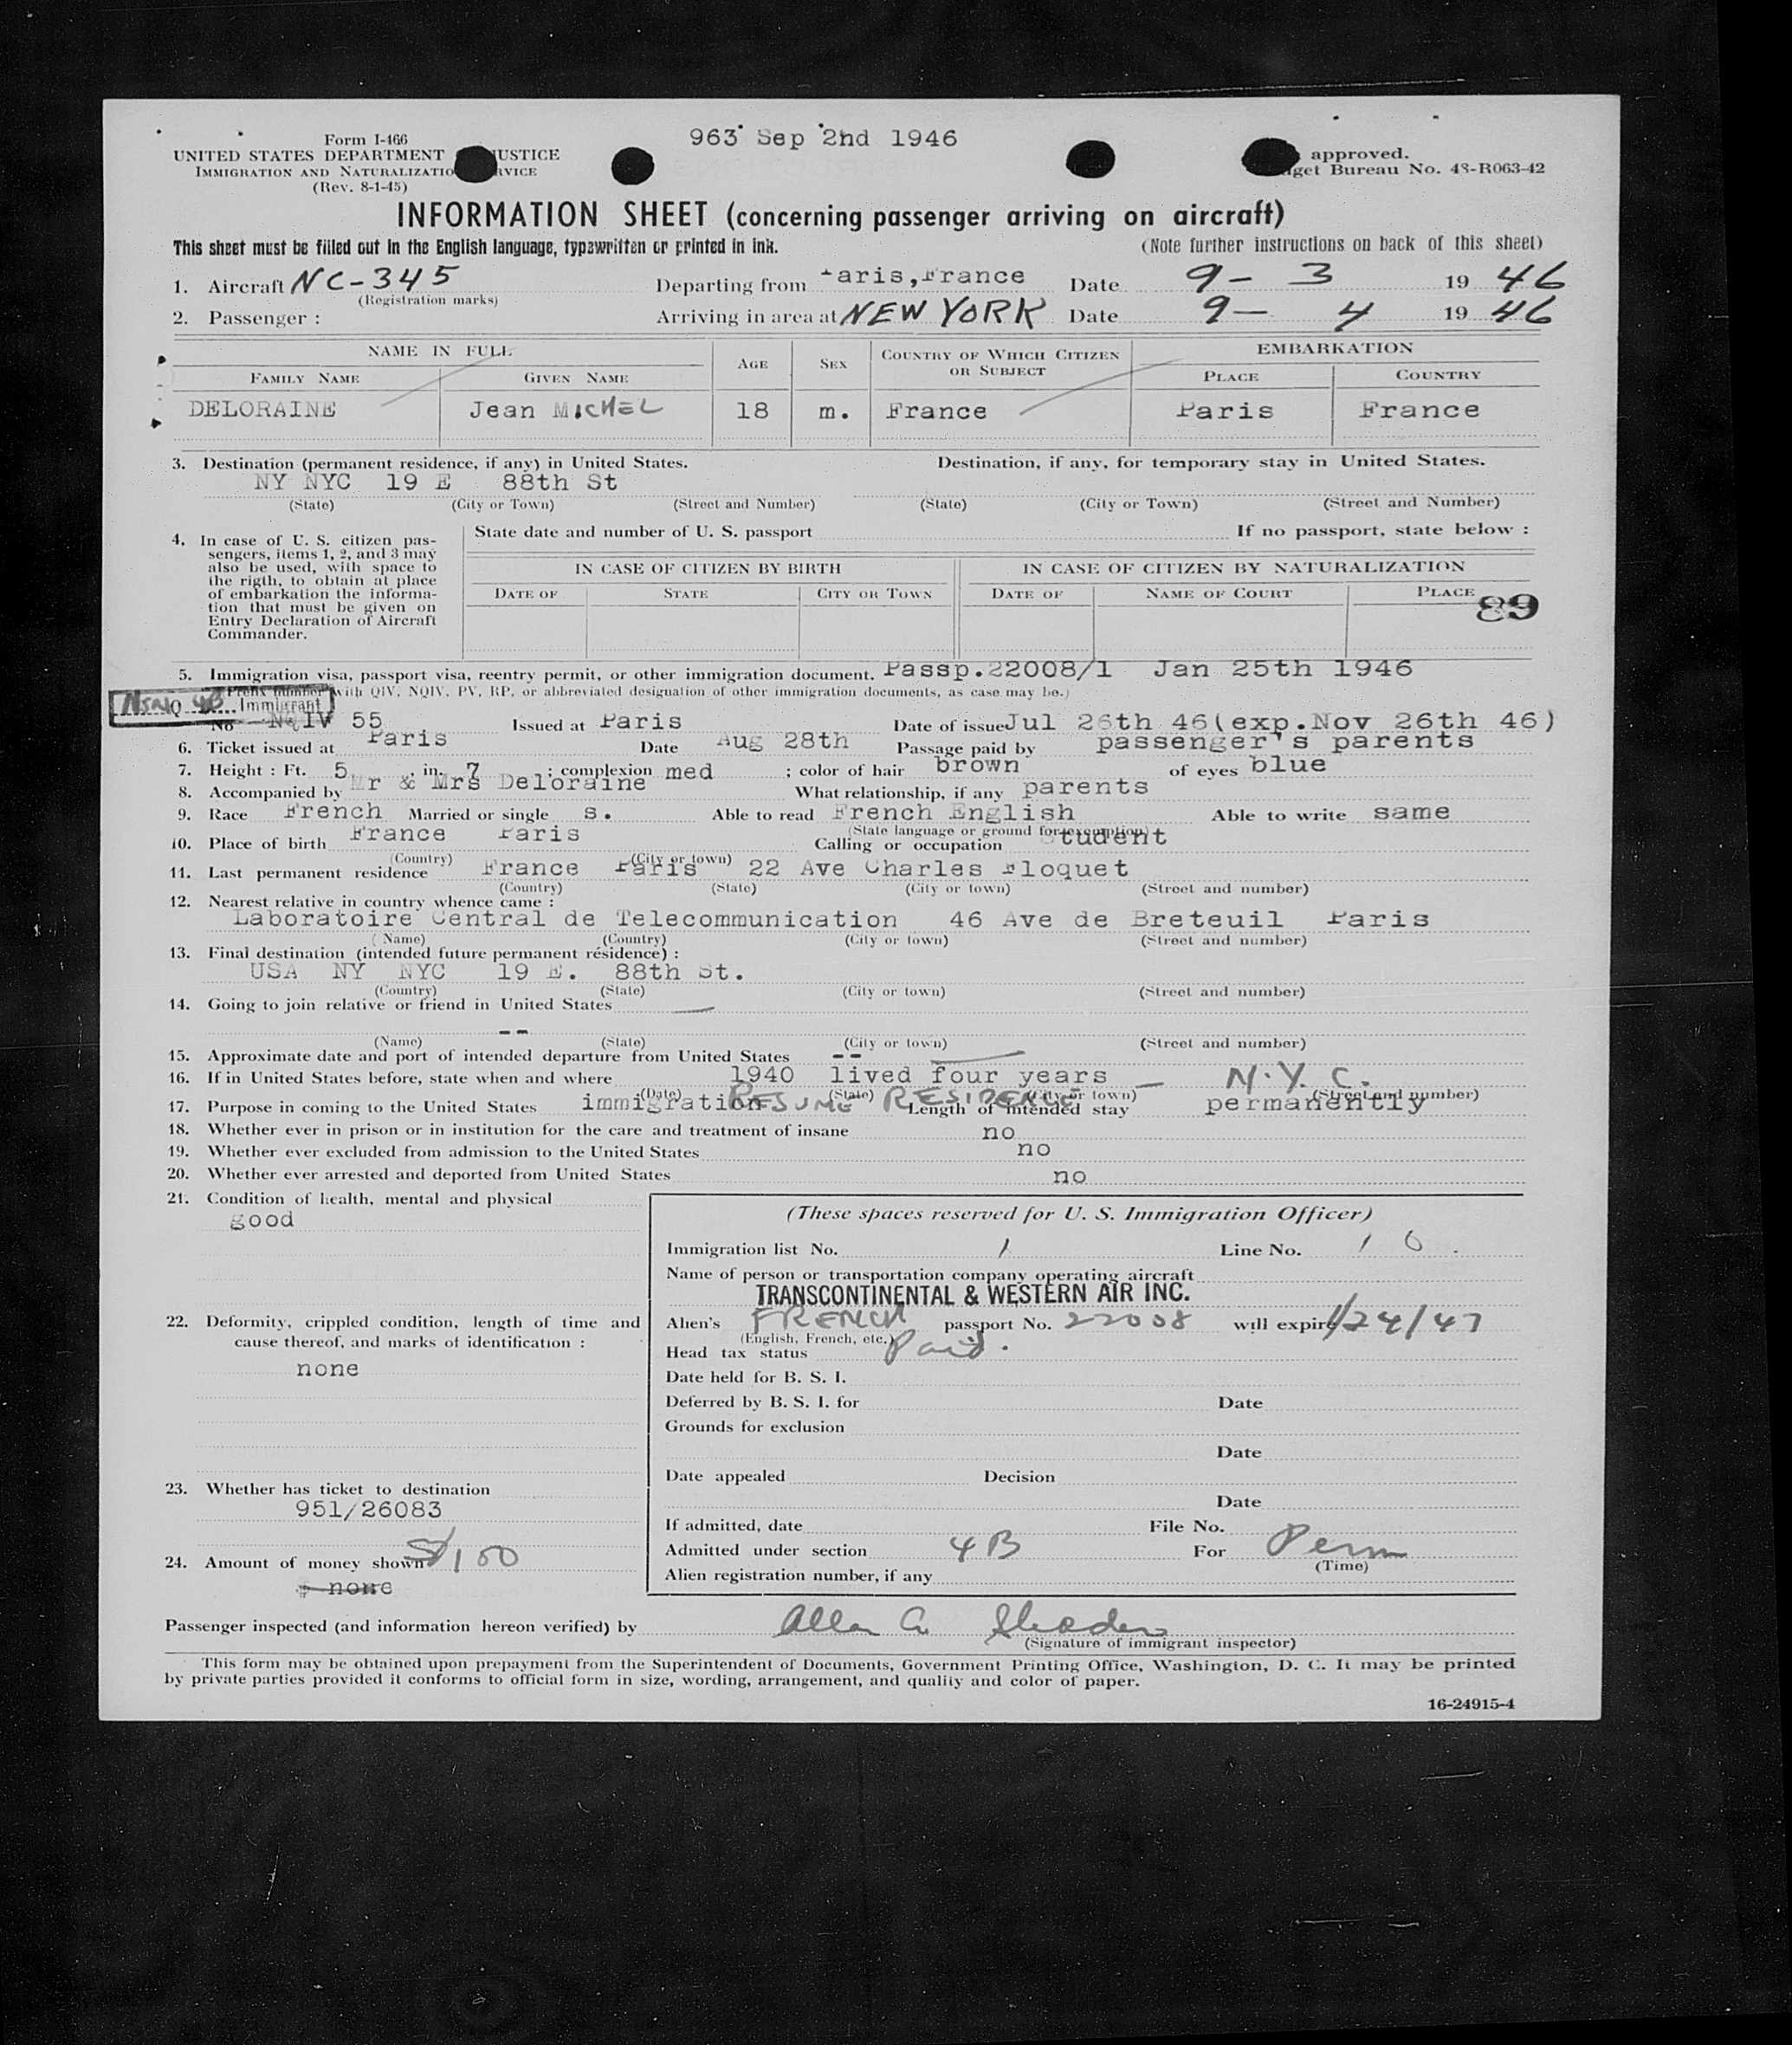 963 Sep 2nd 1946
Form I-466
UNITED STATES DEPARTMENT JUSTICE
IMMIGRATION AND NATURALIZATION SERVICE
(Rev. 8-1-45)
approved.
Budget Bureau No. 43-R063-42
INFORMATION SHEET (concerning passenger arriving on aircraft)
This sheet must be filled out in the English language, typewritten or printed in ink. (Note further instructions on back of this sheet)
1. Aircraft NC-345 Departing from Paris, France Date 9- 3 19 46
(Registration marks)
2. Passenger : Arriving in area at NEW YORK Date 9- 4 19 46
NAME IN FULL AGE SEX COUNTRY OF WHICH CITIZEN OR SUBJECT EMBARKATION
FAMILY NAME GIVEN NAME PLACE COUNTRY
DELORAINE Jean MICHEL 18 m. France Paris France
3. Destination (permanent residence, if any) in United States. Destination, if any, for temporary stay in United States.
NY NYC 19 E 88th St
(State) (City or Town) (Street and Number) (State) (City or Town) (Street and Number)
4. In case of U. S. citizen pas-
sengers, items 1, 2, and 3 may
also be used, with space to
the rigth, to obtain at place
of embarkation the informa-
tion that must be given on
Entry Declaration of Aircraft
Commander.
State date and number of U. S. passport If no passport, state below :
IN CASE OF CITIZEN BY BIRTH IN CASE OF CITIZEN BY NATURALIZATION
DATE OF STATE CITY OR TOWN DATE OF NAME OF COURT PLACE
89
5. Immigration visa, passport visa, reentry permit, or other immigration document. Passp.22008/1 Jan 25th 1946
(Prefix number with QIV, NQIV, PV, RP, or abbreviated designation of other immigration documents, as case may be.)
NQ 4B Immigrant
No NQIV 55 Issued at Paris Date of issue Jul 26th 46(exp.Nov 26th 46)
6. Ticket issued at Paris Date Aug 28th Passage paid by passenger's parents
7. Height : Ft. 5 in. 7 ; complexion med ; color of hair brown of eyes blue
8. Accompanied by Mr & Mrs Deloraine What relationship, if any parents
9. Race French Married or single s. Able to read French English Able to write same
(State language or ground for exemption)
10. Place of birth France Paris Calling or occupation Student
(Country) (City or town)
11. Last permanent residence France Paris 22 Ave Charles Floquet
(Country) (State) (City or town) (Street and number)
12. Nearest relative in country whence came :
Laboratoire Central de Telecommunication 46 Ave de Breteuil Paris
(Name) (Country) (City or town) (Street and number)
13. Final destination (intended future permanent résidence) :
USA NY NYC 19 E. 88th St.
(Country) (State) (City or town) (Street and number)
14. Going to join relative or friend in United States —
--
(Name) (State) (City or town) (Street and number)
15. Approximate date and port of intended departure from United States --
16. If in United States before, state when and where 1940 lived four years — N.Y.C.
(Date) (State) (City or town) (Street and number)
17. Purpose in coming to the United States immigration RESUME RESIDENCE Length of intended stay permanently
18. Whether ever in prison or in institution for the care and treatment of insane no
19. Whether ever excluded from admission to the United States no
20. Whether ever arrested and deported from United States no
21. Condition of health, mental and physical
good
22. Deformity, crippled condition, length of time and
cause thereof, and marks of identification :
none
23. Whether has ticket to destination
951/26083
24. Amount of money shown $100
$ none
(These spaces reserved for U. S. Immigration Officer)
Immigration list No. 1 Line No. 10.
Name of person or transportation company operating aircraft
TRANSCONTINENTAL & WESTERN AIR INC.
Alien's FRENCH passport No. 22008 will expire 1/24/47
(English, French, etc.)
Head tax status Paid.
Date held for B. S. I.
Deferred by B. S. I. for Date
Grounds for exclusion
Date
Date appealed Decision
Date
If admitted, date File No.
Admitted under section 4B For Perm
(Time)
Alien registration number, if any
Passenger inspected (and information hereon verified) by Allen G.
(Signature of immigrant inspector)
This form may be obtained upon prepayment from the Superintendent of Documents, Government Printing Office, Washington, D. C. It may be printed
by private parties provided it conforms to official form in size, wording, arrangement, and quality and color of paper.
16-24915-4